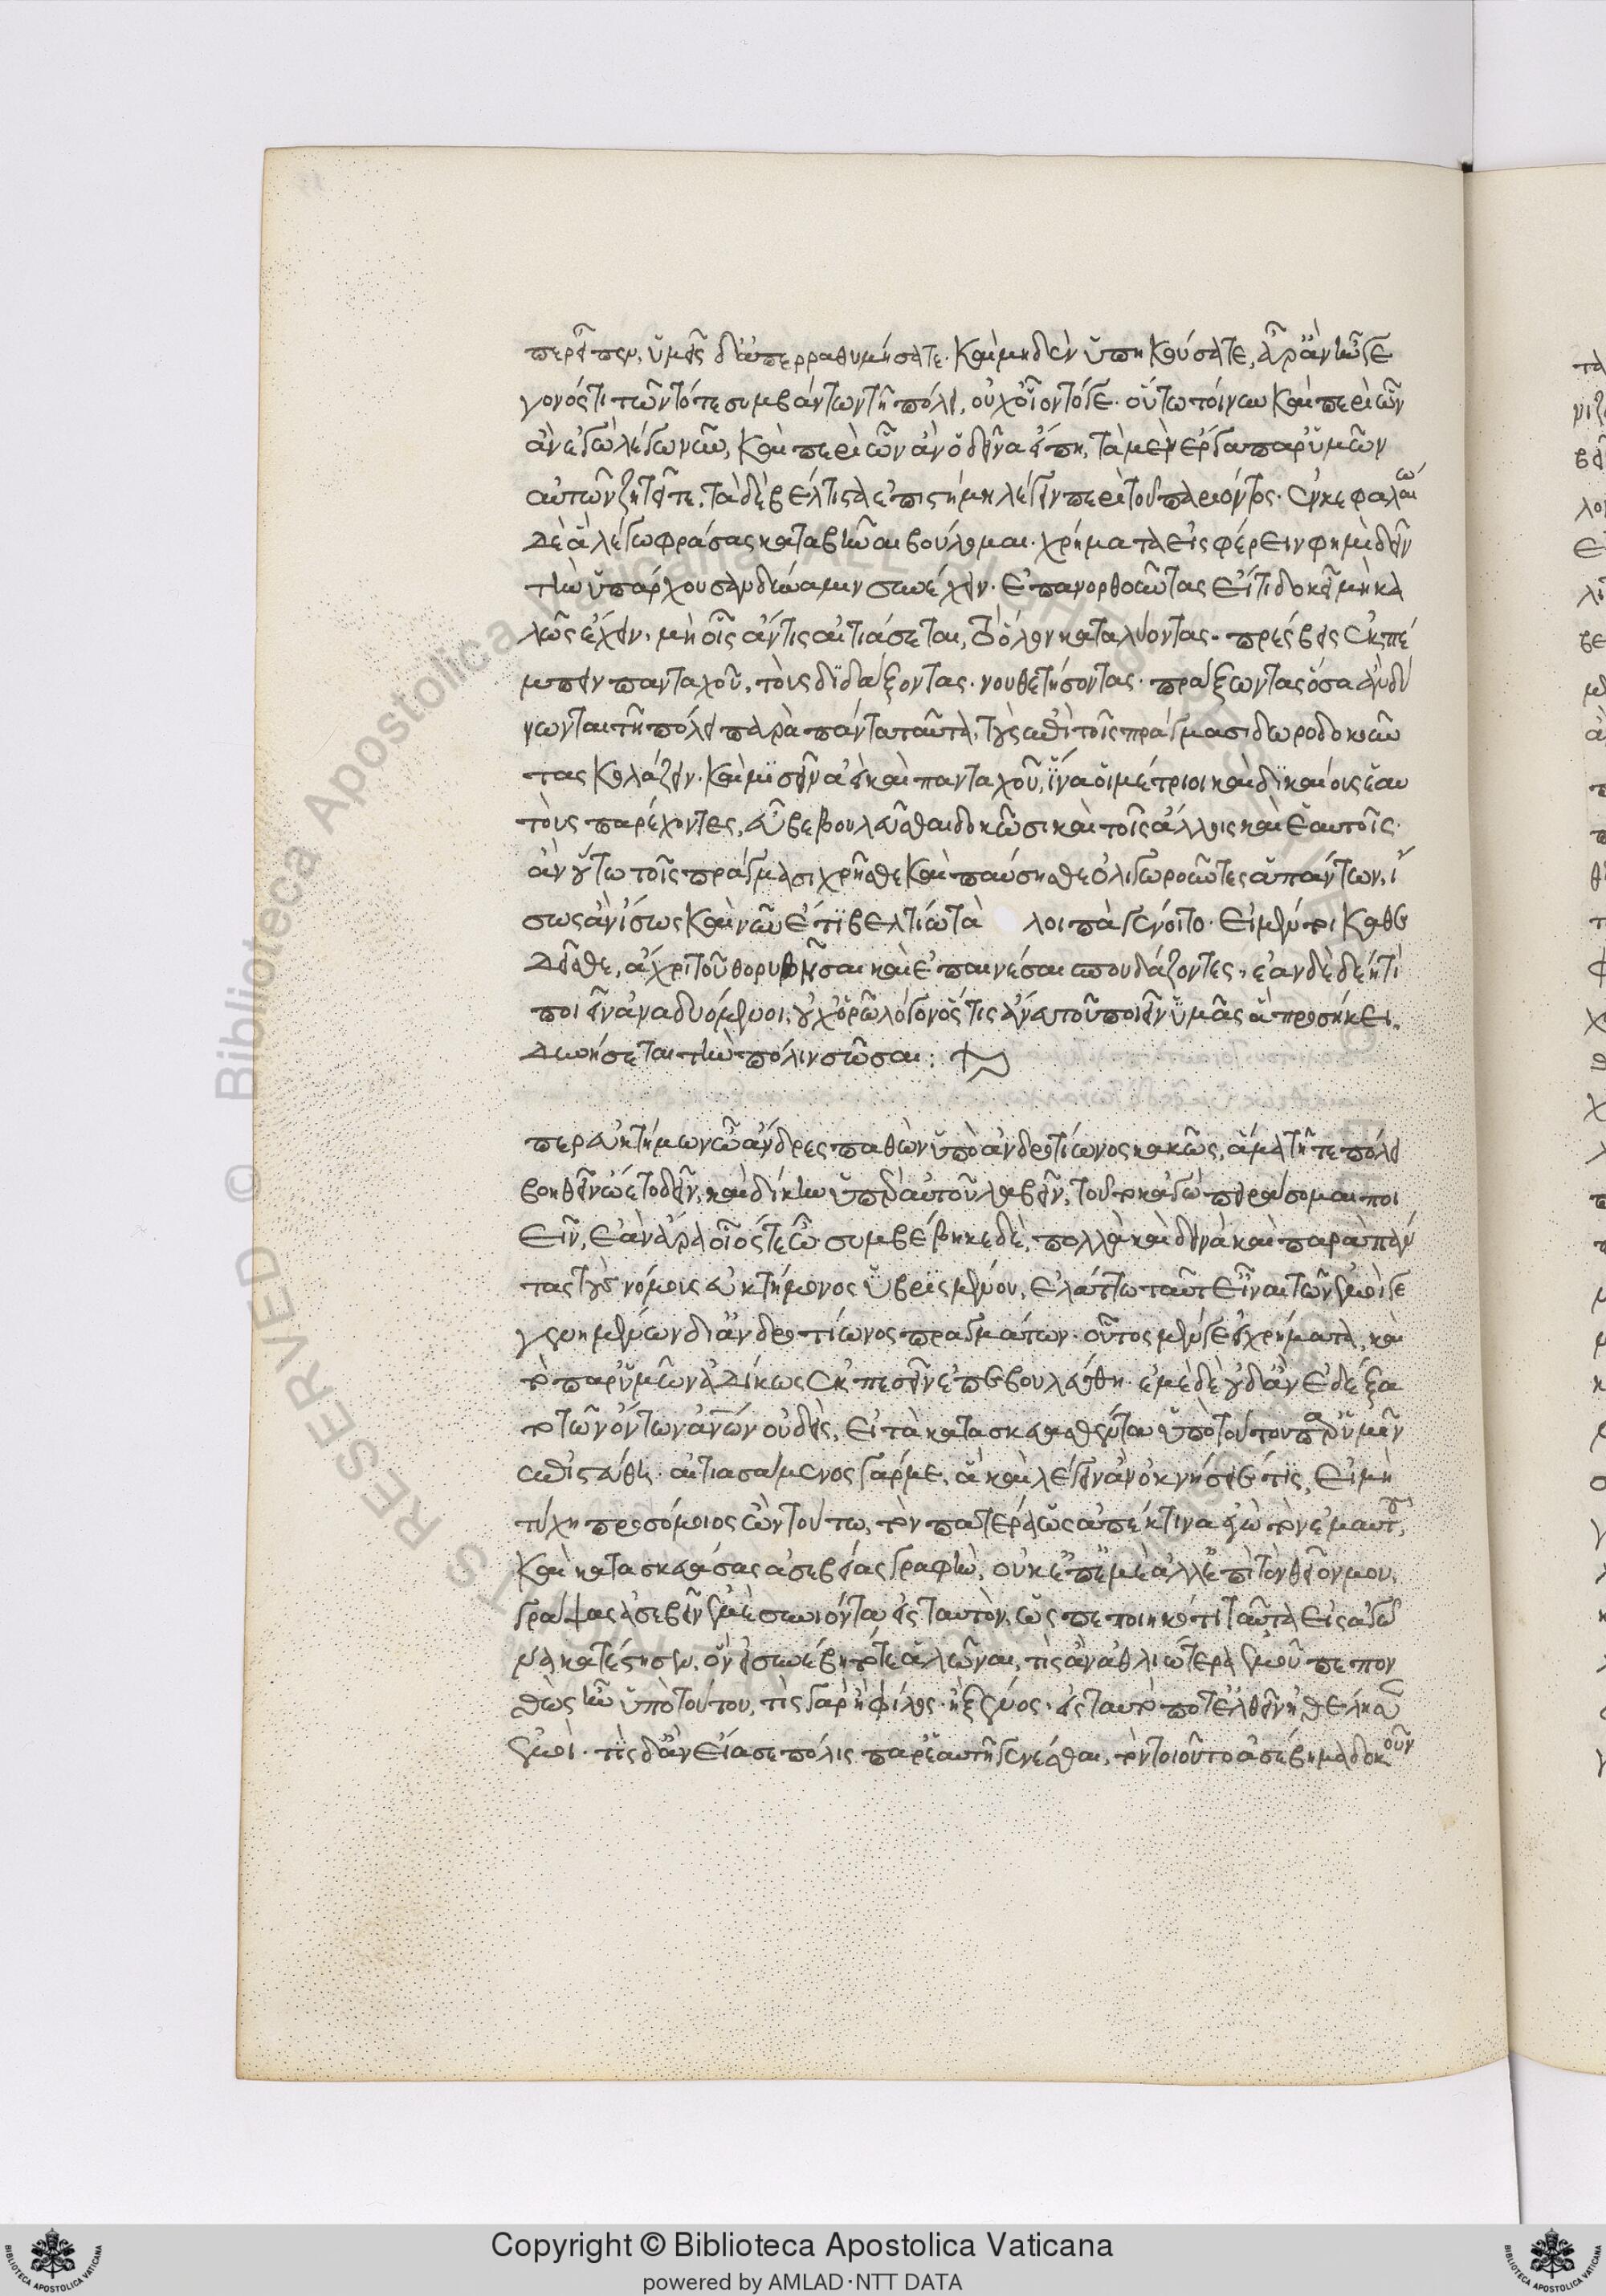 περ εἶπεν, ὑμεῖς δ' ὑπερραθυμήσατε· καὶ μηδὲν ὑπηκούσατε, ἆρ' ἂν ᾤεσθε
γονός τι τῶν τότε συμβάντων τῇ πόλει, οὐχ οἷόν τό γε· οὕτω τοίνυν καὶ περὶ ὧν
ἂν ἐγὼ λέγω νῦν, καὶ περὶ ὧν ἂν ὁ δεῖνα εἴπῃ, τὰ μὲν ἔργα παρ' ὑμῶν
αὐτῶν ζητεῖτε, τὰ δὲ βέλτιστα ἐπιστήμῃ λέγειν περὶ τοῦ παριόντος· ἐν κεφαλαίῳ
δὲ ἃ λέγω φράσας καταβῆναι βούλομαι· χρήματα εἰσφέρειν φημὶ δεῖν
τὴν ὑπάρχουσαν δύναμιν συνέχειν· ἐπανορθοῦντας εἴ τι δοκεῖ μὴ κα
λῶς ἔχειν· μὴ οἷς ἄν τις αἰτιάσεται, τὸ ὅλον καταλύοντας· πρέσβεις ἐκπέ
μπειν πανταχοῦ, τοὺς διδάξοντας· νουθετήσοντας· πράξωντας ὅσα ἂν δύ
νωνται τῇ πόλει παρὰ πάντα ταῦτα, τοὺς ἐπὶ τοῖς πράγμασι δωροδοκοῦν
τας κολάζειν· καὶ μισεῖν ἀεὶ καὶ πανταχοῦ, ἵνα οἱ μέτριοι καὶ δικαίους ἑαυ
τοὺς παρέχοντες, εὖ βεβουλεῦσθαι δοκῶσι καὶ τοῖς ἄλλοις καὶ ἑαυτοῖς·
ἂν οὕτω τοῖς πράγμασι χρῆσθε καὶ παύσησθε ὀλιγωροῦντες ἁπάντων, ἴ
σως ἂν ἴσως καὶ νῦν ἔτι βελτίω τὰ λοιπὰ γένοιτο· εἰ μέντοι καθε
δεῖσθε, ἄχρι τοῦ θορυβῆσαι καὶ ἐπαινέσαι σπουδάζοντες, ἐὰν δὲ δέῃ τι
ποιεῖν ἀναδυόμενοι, οὐχ ὁρῶ λόγον ὅστις ἄνευ τοῦ ποιεῖν ὑμᾶς ἃ προσήκει,
δυνήσεται τὴν πόλιν σῶσαι:
περ εὐκτήμων ὦ ἄνδρες παθὼν ὑπὸ ἀνδροτίωνος κακῶς, ἅμα τῇ τε πόλει
βοηθεῖν ᾤετο δεῖν, καὶ δίκην ὑπὲρ αὑτοῦ λαβεῖν, τοῦτο κἀγὼ πειράσομαι ποι
εῖν, ἐὰν ἄρα οἷός τε ὦ· συμβέβηκε δὲ, πολλὰ καὶ δεινὰ καὶ παρὰ πάν
τας τοὺς νόμους εὐκτήμονος ὑβρισμένου, ἐλάττω ταῦτ' εἶναι τῶν ἐμοὶ γε
γενημένων δι' ἀνδροτίωνος πραγμάτων· οὗτος μέν γε εἰς χρήματα, καὶ
τὸ παρ' ὑμῶν ἀδίκως ἐκπεσεῖν ἐπεβουλεύθη· ἐμὲ δὲ οὐδ' ἂν ἐδέξα
το τῶν ὄντων ἀνων οὐδεὶς, εἰ τὰ κατασκευασθέντα ὑπὸ τούτου παρ' ὑμῖν
ἐπιστεύθη· αἰτιασάμενος γάρ με, ἃ καὶ λέγειν ἂν ὀκνήσειέ τις, εἰ μὴ
τύχῃ προσόμοιος ὢν τούτῳ, τὸν πατέρα ὡς ἀπέκτινα ἐγὼ τὸν ἐμαυτοῦ,
καὶ κατασκευάσας ἀσεβείας γραφὴν, οὐκ ἐπ' ἐμὲ ἀλλ' ἐπὶ τὸν θεῖόν μου,
γράψας ἀσεβεῖν ἐμὲ συνιόντα εἰς ταυτὸν, ὡς πεποιηκότι ταῦτα εἰς ἀγῶ
να κατέστησεν, ὃν εἰ συνέβη τότε ἁλῶναι, τίς ἂν ἀθλιώτερα ἐμοῦ πεπον
θὼς ἦν ὑπὸ τούτου, τίς γὰρ ἢ φίλος· ἢ ξένος· εἰς ταυτό ποτε ἐλθεῖν ἠθέλησεν
ἐμοί· τίς δ' ἂν εἴασε πόλις παρ' ἑαυτῇ γενέσθαι, τὸν τοιοῦτο ἀσέβημα δοκοῦν
Copyright © Biblioteca Apostolica Vaticana
powered by AMLAD·NTT DATA